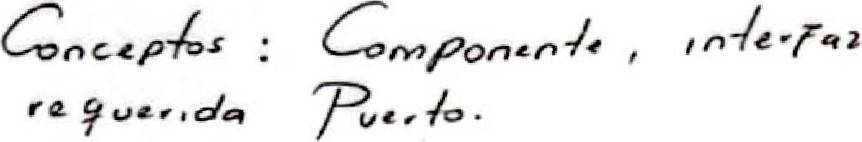 Conceptos : Componente, interfaz
requerida Puerto.